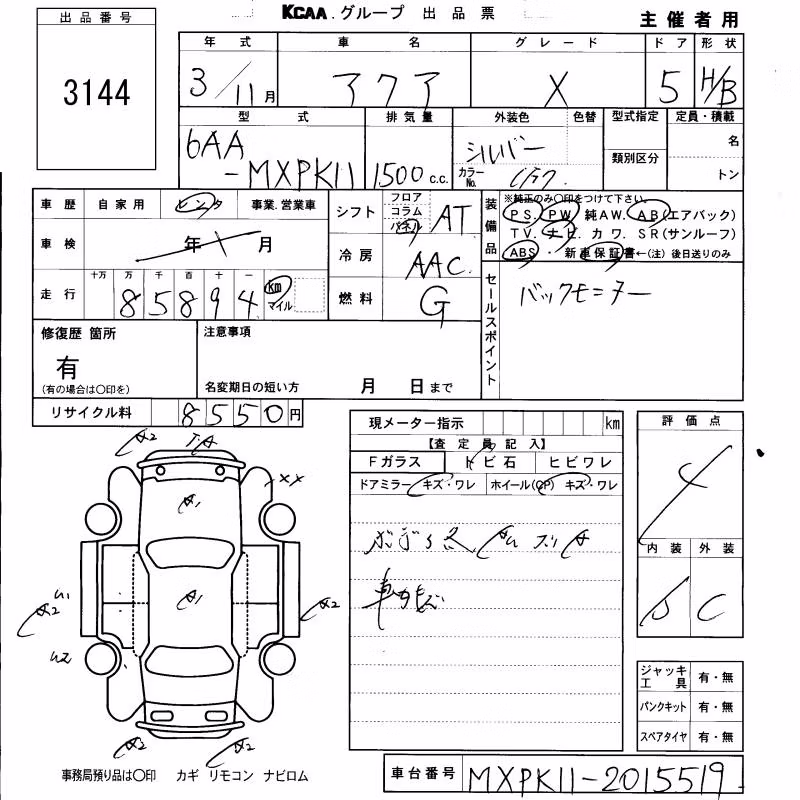 KCAA.グループ 出品票
主催者用
出品番号
3144
年式 車名 グレード ドア 形状
3/11月 アクア X 5 H/B
型式 排気量 外装色 色替 型式指定 定員・積載
6AA-MXPK11 1500c.c. シルバー
カラーNo. 1F7
類別区分
名
トン
車歴 自家用 レンタ 事業.営業車
車検 年 月
走行 十万 万 千 百 十 一
85894 km マイル
シフト フロア コラム パネル AT
冷房 AAC
燃料 G
装備品
※純正のみ〇印をつけて下さい。
PS. PW 純AW. AB(エアバック)
TV. ナビ. カワ. SR(サンルーフ)
ABS. 新車保証書←(注)後日送りのみ
セールスポイント
バックモニター
修復歴 箇所
有
(有の場合は〇印を)
注意事項
名変期日の短い方 月 日まで
リサイクル料 8550円
現メーター指示 km
【査定員記入】
Fガラス トビ石 ヒビワレ
ドアミラー キズ・ワレ ホイール(CP) キズ・ワレ
評価点
4
内装 外装
D C
A2
A1
XX
A1
U1
A2
A2
U2
A2
A2
ジャッキ工具 有・無
パンクキット 有・無
スペアタイヤ 有・無
事務局預り品は〇印 カギ リモコン ナビロム
車台番号 MXPK11-2015519